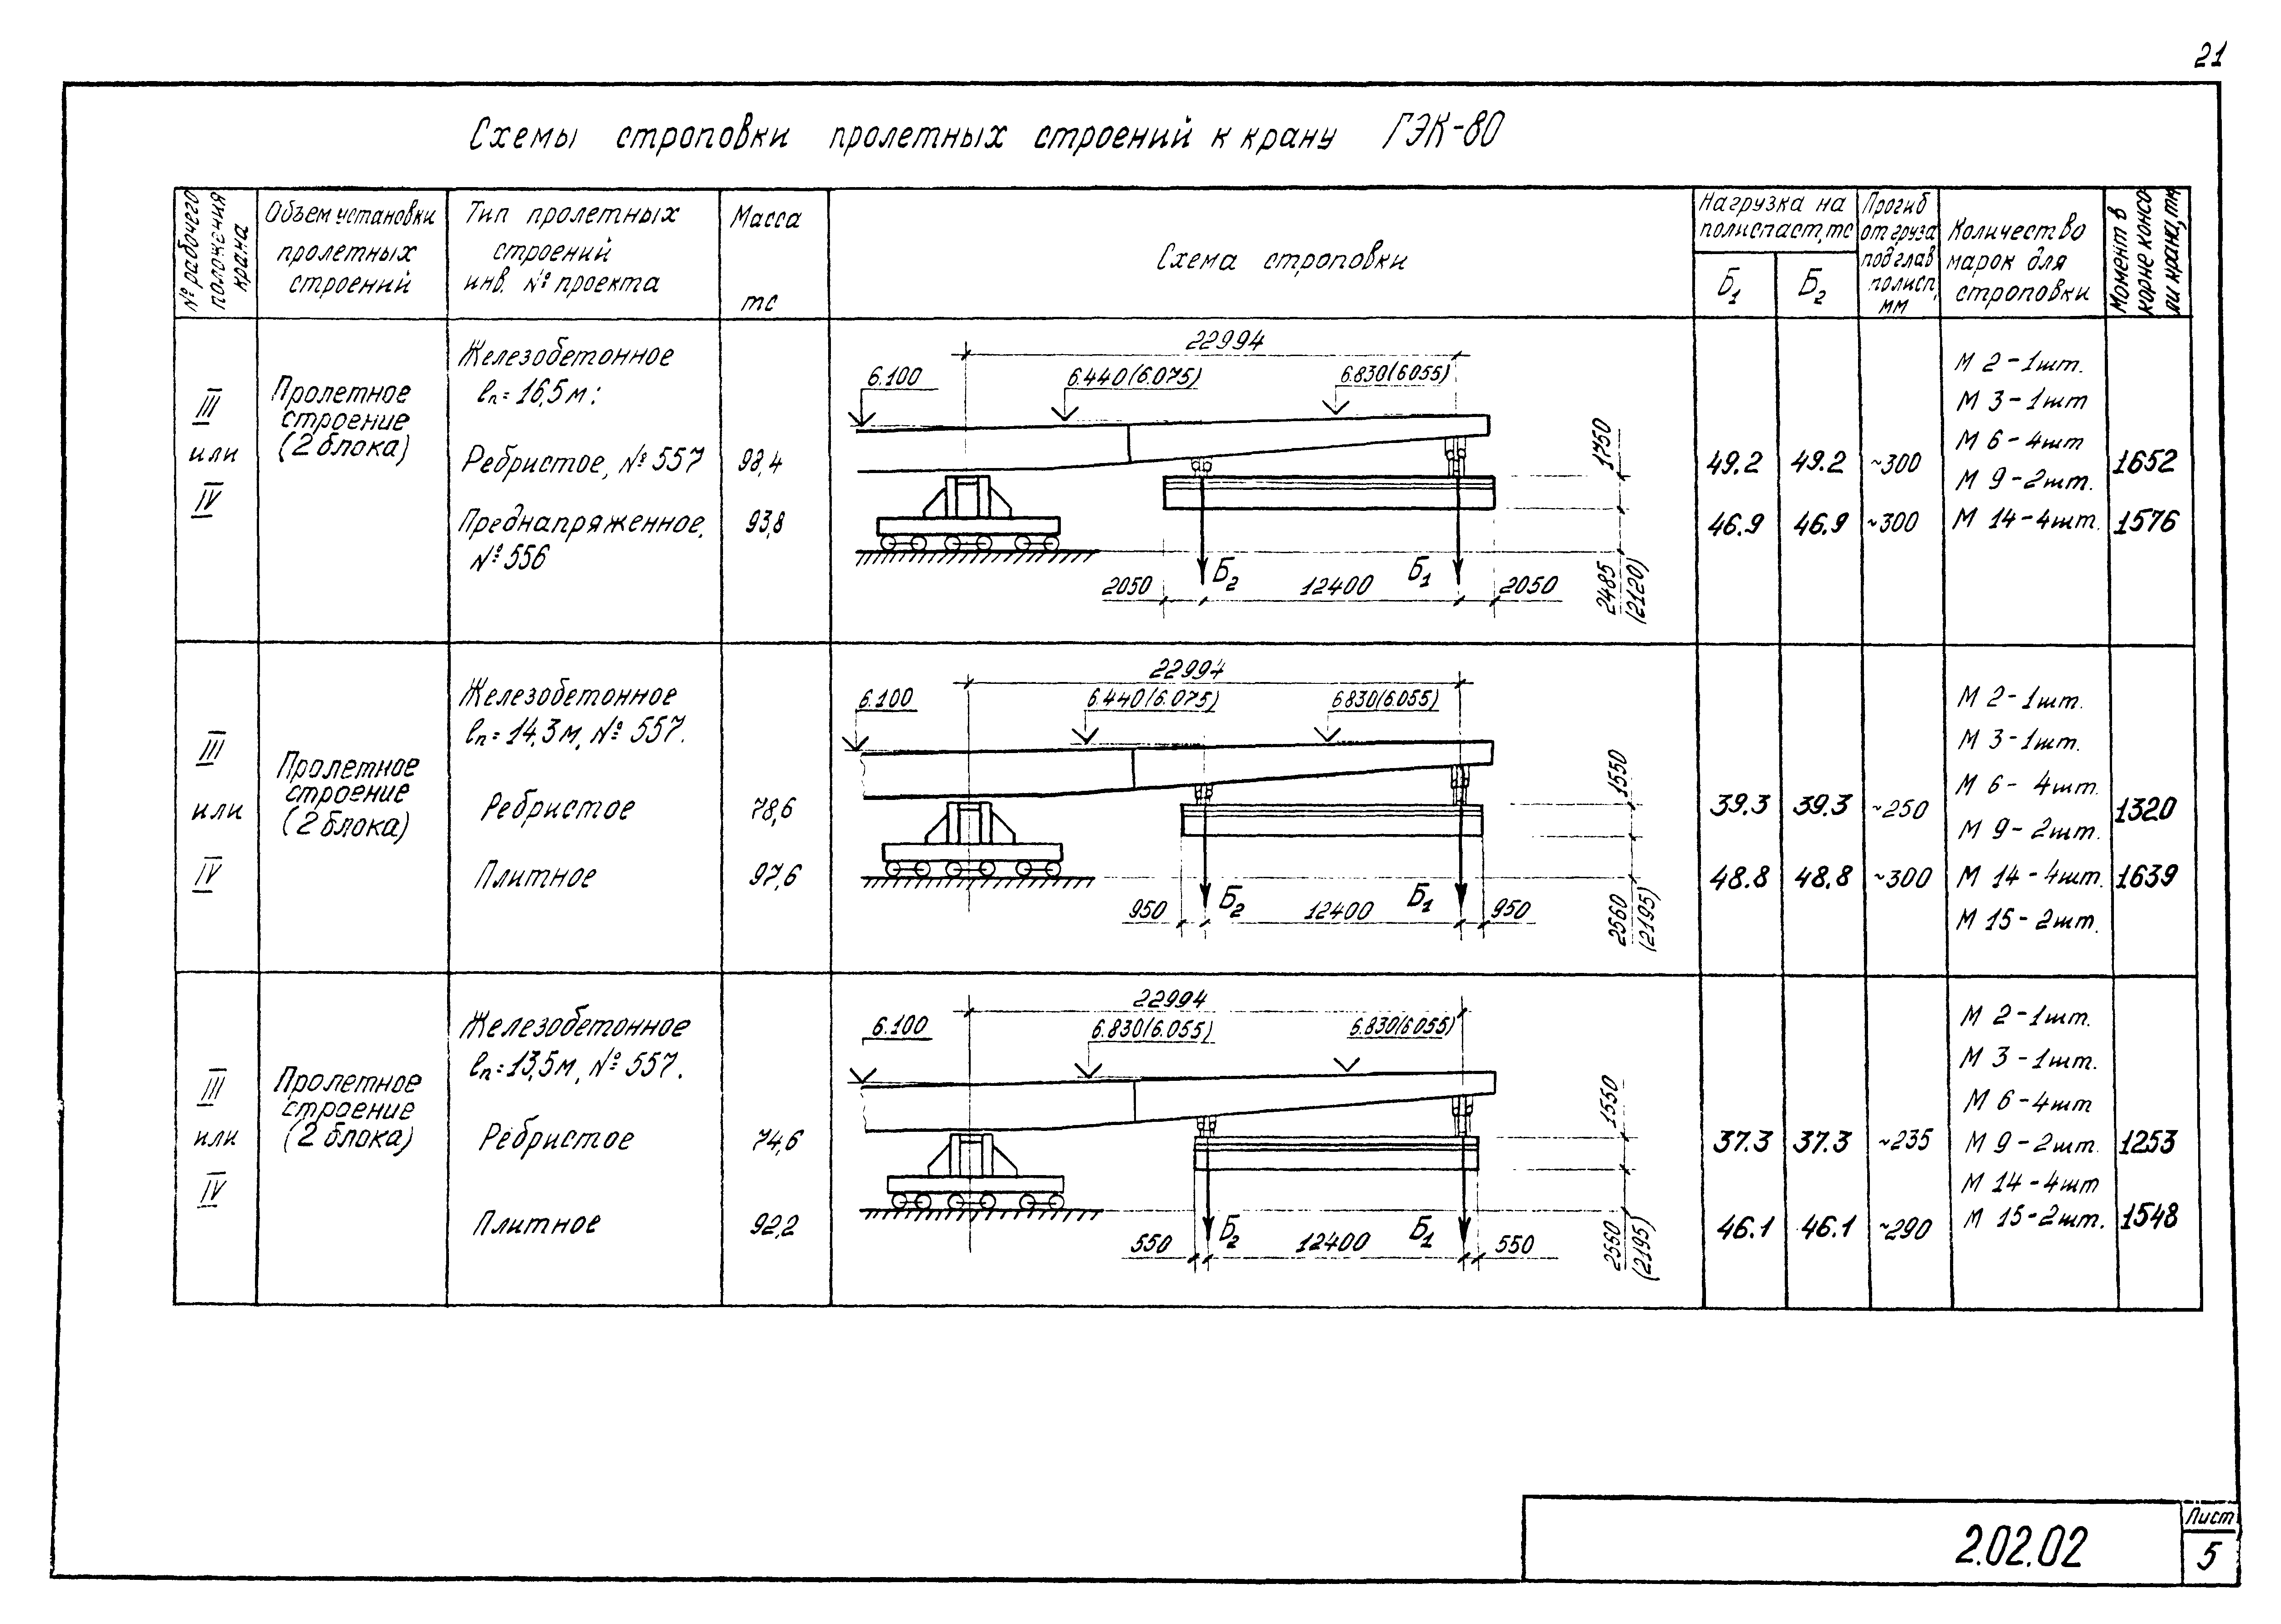 21
Схемы строповки пролетных строений к крану ГЭК-80
№ рабочего
положения
крана
Объем установки
пролетных
строений
Тип пролетных
строений
инв. № проекта
Масса
тс
Схема строповки
Нагрузка на
полиспаст, тс
Б1
Б2
Прогиб
от груза
под глав
полисп,
мм
Количество
марок для
строповки
Момент в
корне консо-
ли крана, тм
III
или
IV
Пролетное
строение
(2 блока)
Железобетонное
ℓп=16,5м:
Ребристое, № 557
98,4
Преднапряженное,
№ 556
93,8
22994
6.100
6.440(6.075)
6.830(6055)
1750
2485
(2120)
2050
Б2
12400
Б1
2050
49.2
49.2
~300
46.9
46.9
~300
М 2-1шт.
М 3-1шт
М 6-4шт
М 9-2шт.
М 14-4шт.
1652
1576
III
или
IV
Пролетное
строение
(2 блока)
Железобетонное
ℓп=14,3м, № 557.
Ребристое
78,6
Плитное
97,6
22994
6.100
6.440(6.075)
6830(6.055)
1550
2560
(2195)
950
Б2
12400
Б1
950
39.3
39.3
~250
48.8
48.8
~300
М 2-1шт.
М 3-1шт.
М 6- 4шт.
М 9-2шт.
М 14-4шт.
М 15-2шт.
1320
1639
III
или
IV
Пролетное
строение
(2 блока)
Железобетонное
ℓп=13,5м, № 557.
Ребристое
74,6
Плитное
92,2
22994
6.100
6.830(6.055)
6.830(6055)
1550
2560
(2195)
550
Б2
12400
Б1
550
37.3
37.3
~235
46.1
46.1
~290
М 2-1шт.
М 3-1шт.
М 6-4шт
М 9-2шт.
М 14-4шт
М 15-2шт.
1253
1548
2.02.02
Лист
5